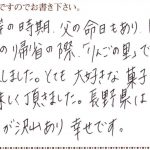 ですのでお書き下さい。
の時期、父の命日もあり、
の帰省の際、「りんごの里」で
しました。とても大好きな菓子
味しく頂きました。長野県は
が沢山あり幸せです。